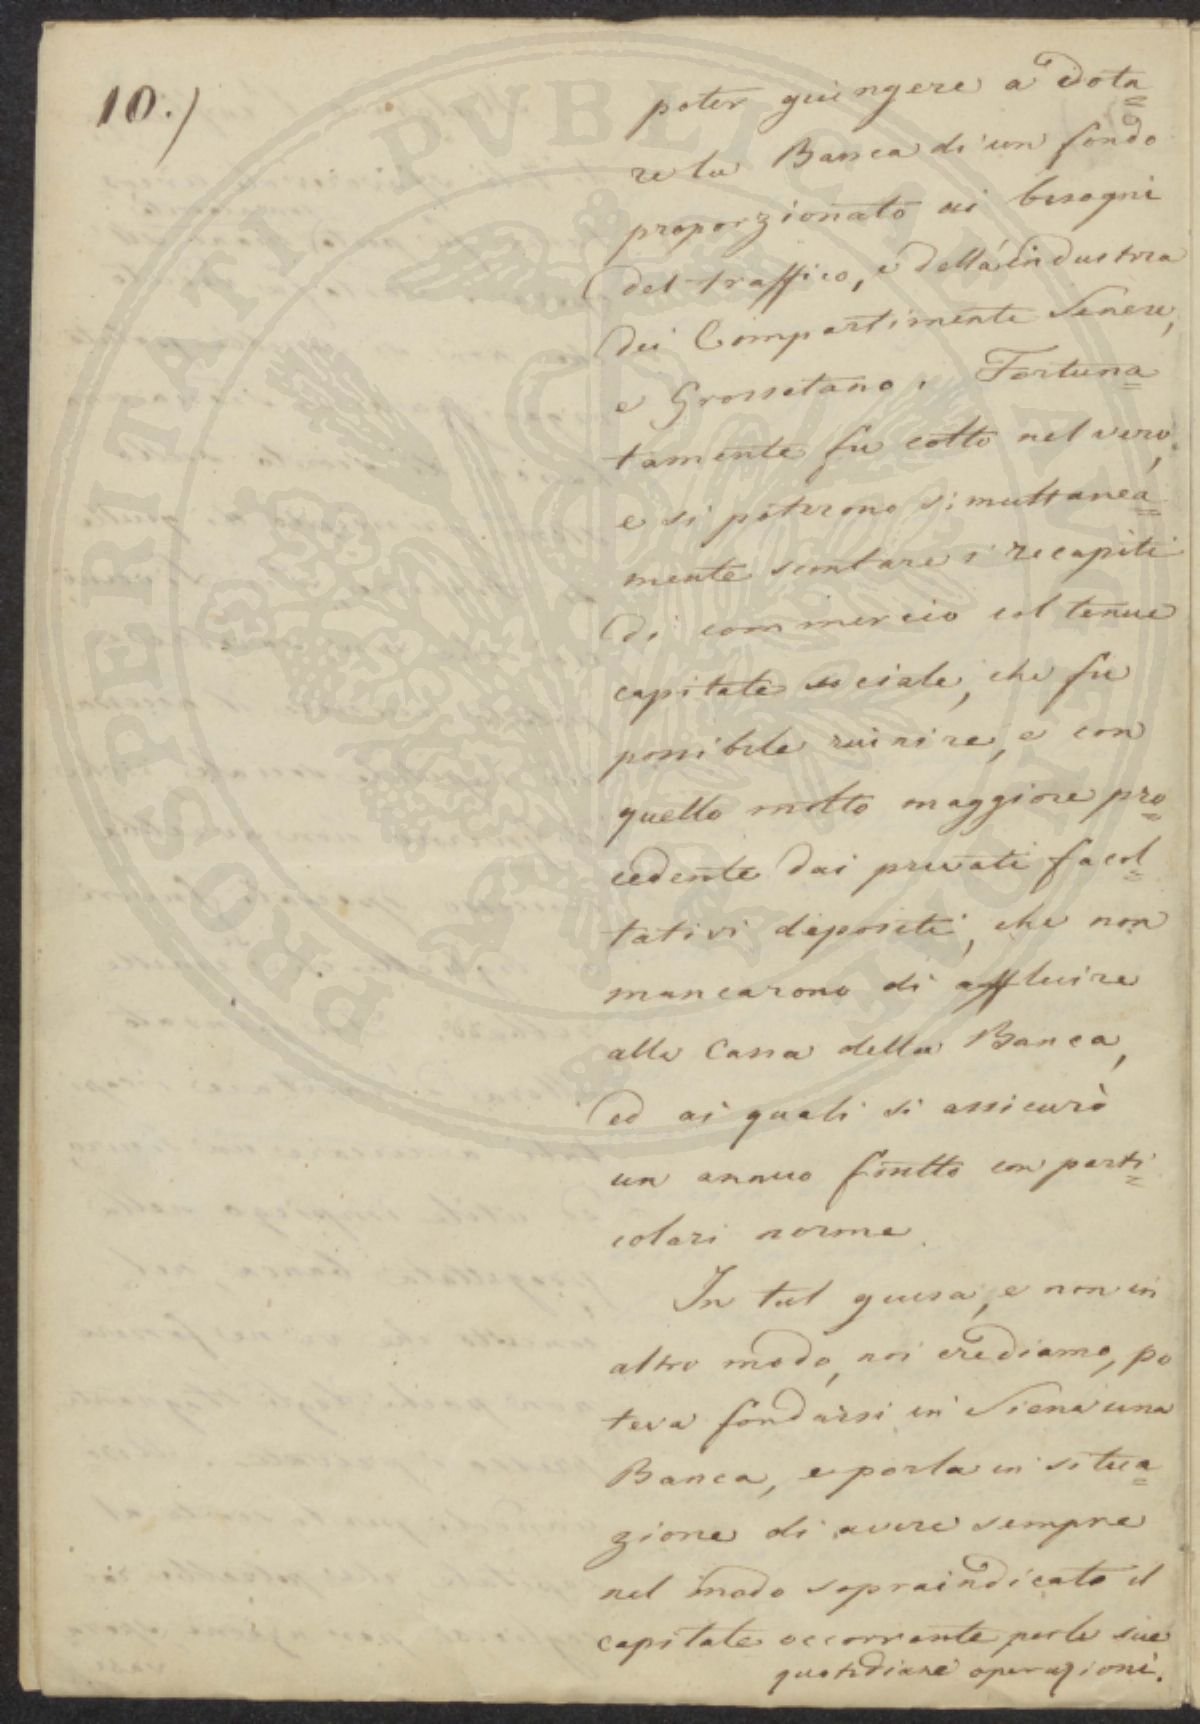 10.)
poter giungere a dota=
re la Banca di un fondo
proporzionato ai bisogni
del traffico, e della industria
dei Compartimenti Senese,
e Grossetano. Fortuna=
tamente fu colto nel vero,
e si poterono simultanea=
mente scontare i recapiti
di commercio col tenue
capitale sociale, che fu
possibile riunire, e con
quello molto maggiore pro=
cedente dai privati facol=
tativi depositi, che non
mancarono di affluire
alla Cassa della Banca,
ed ai quali si assicurò
un annuo frutto con parti=
colari norme.
In tal guisa, e non in
altro modo, noi crediamo, po
teva fondarsi in Siena una
Banca, e porla in situa=
zione di avere sempre
nel modo sopraindicato il
capitale occorrente per le sue
quotidiane operazioni.
PROSPERITATI PVBLICAE